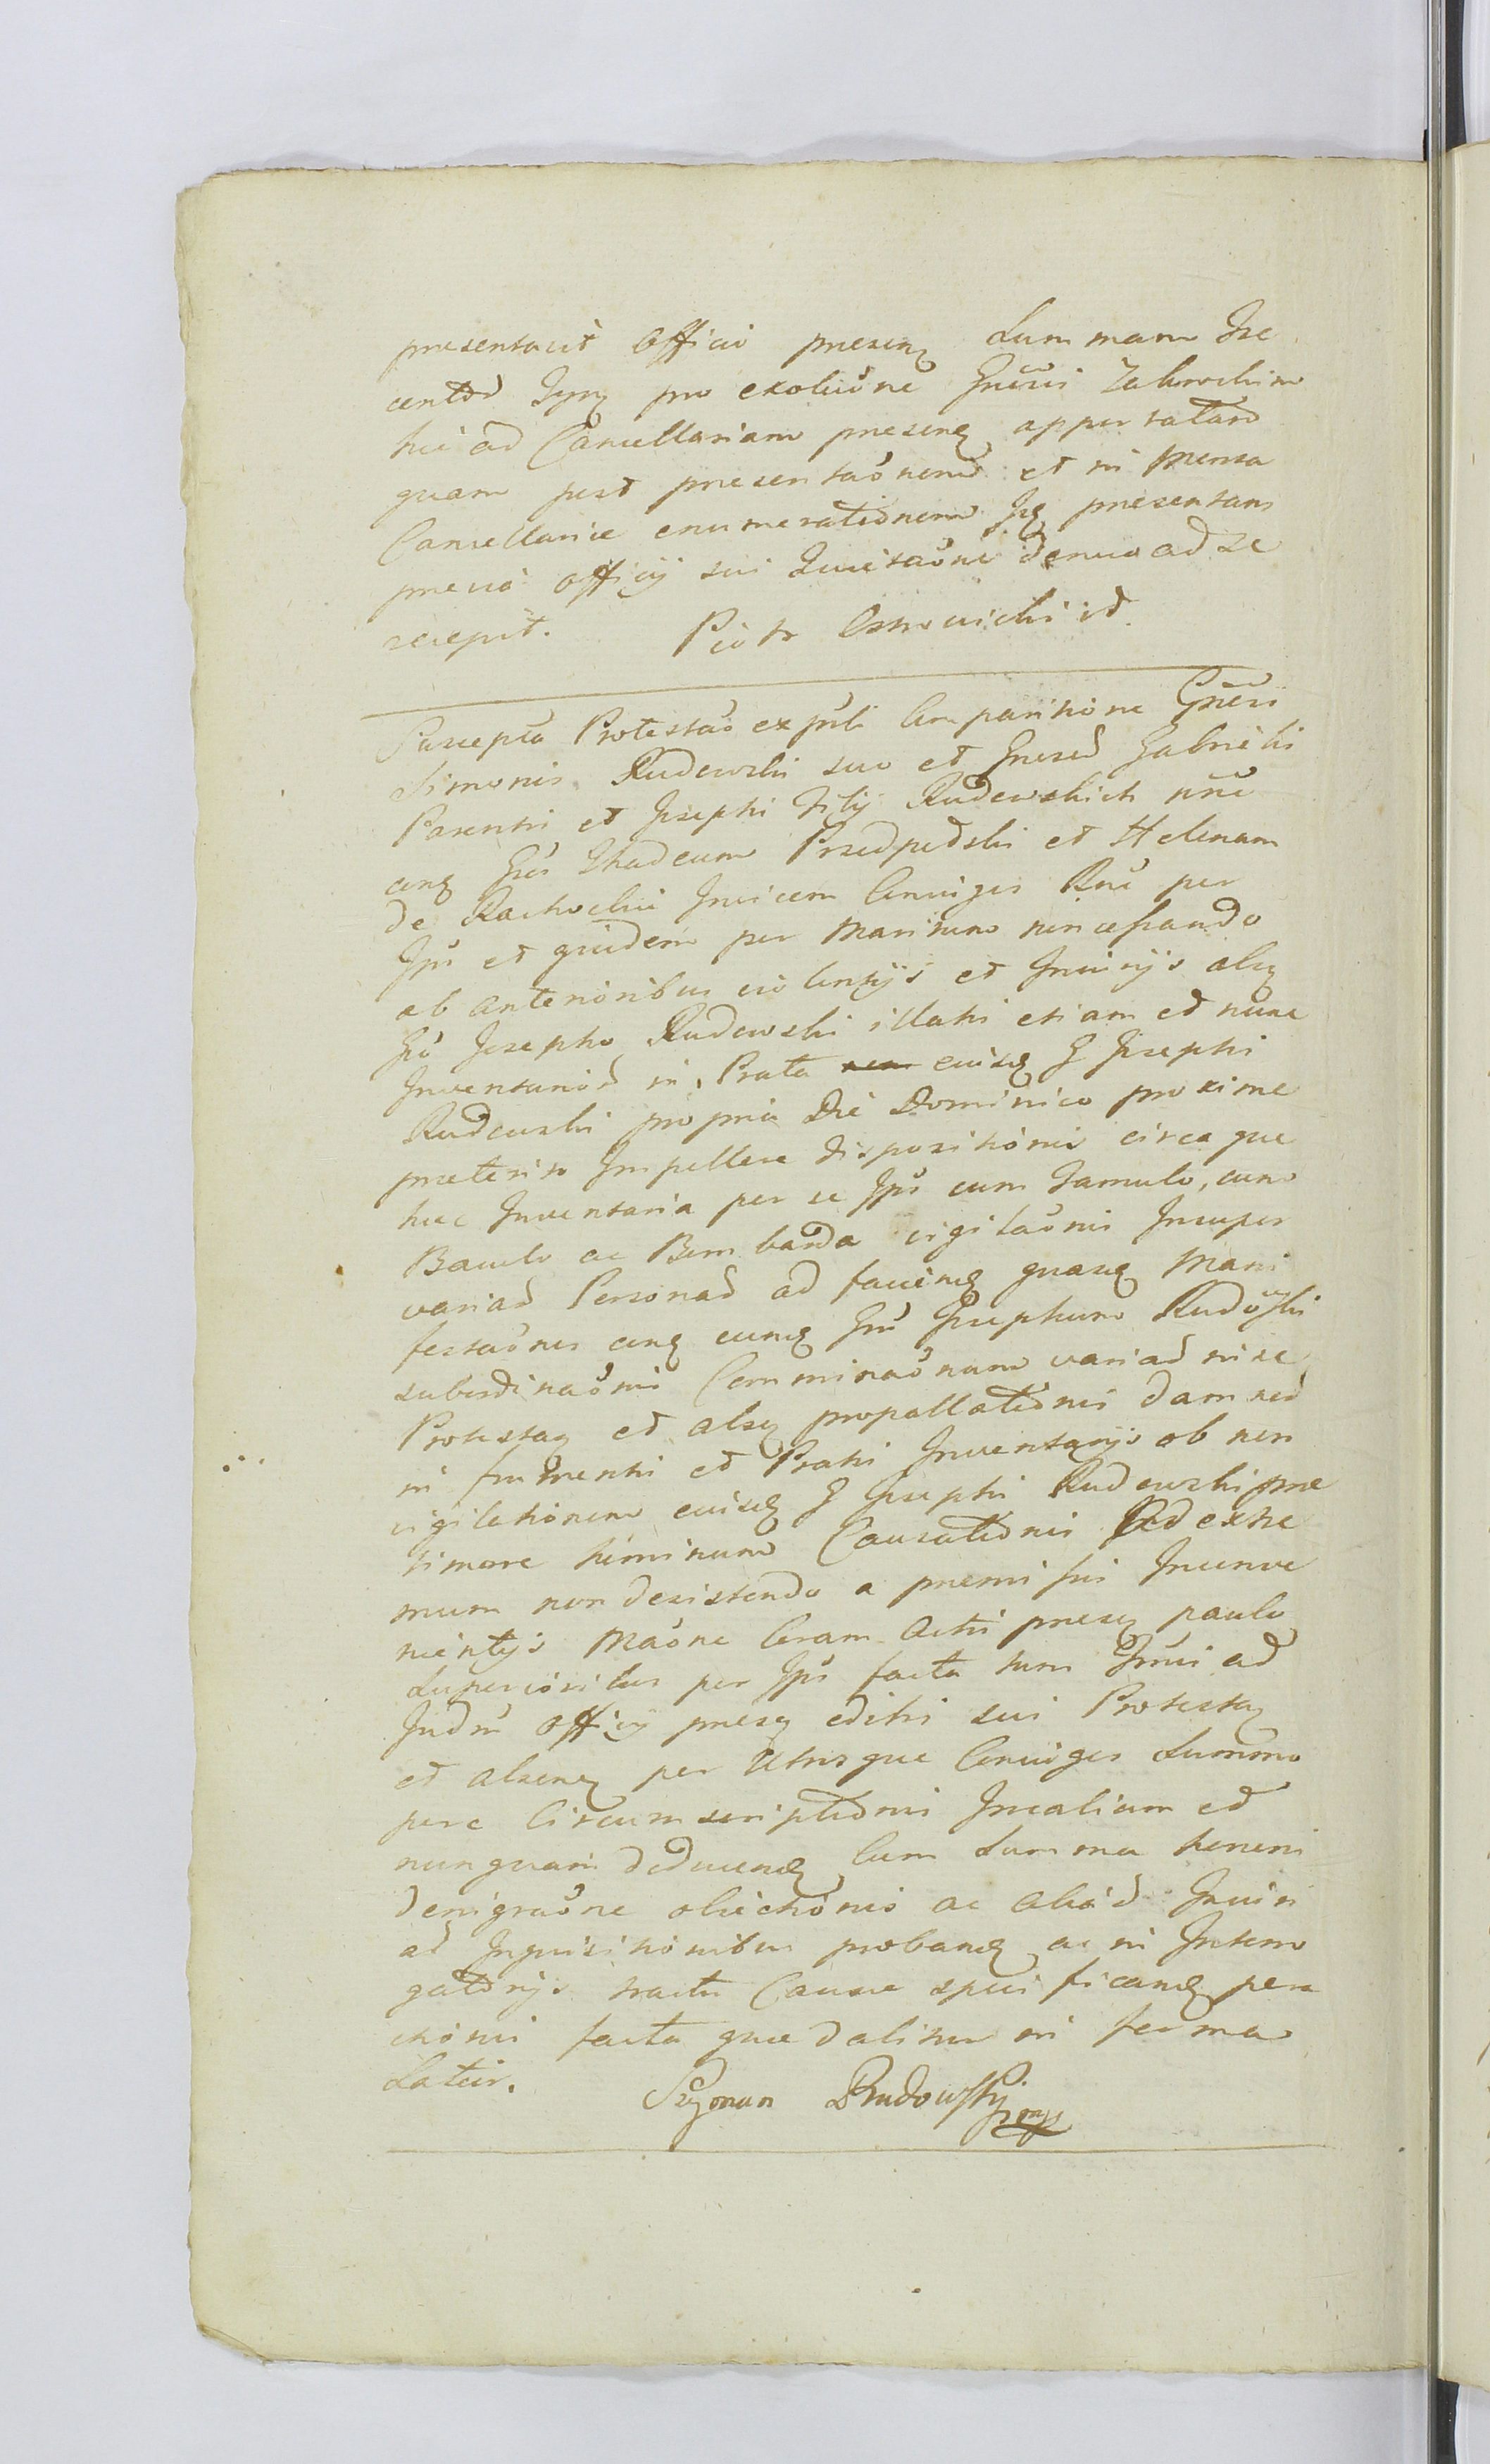 presentavit Officio presenq Summam Tre
centos Tynq pro exolutione Gnesui Zabrockim
hic ad Cancellariam presenq apportatam
quam post presentaonem et in Mensa
Cancellariae enumerationem Isq presentans
previa Officij sui Quietaone denuo ad se
recepit. Piotr Ostrowicki id
Suscepta Protestao ex pnti Comparitione Gnesi
Simonis Rudowski suo et Gnesod Gabrielis
Parentis et Josephi Filij Rudowskich nne
cong Gsos Thadeum Przedpełski et Helenam
de Rachockie Invicem Coniuges Rne per
Ipsu et quidem per Maritum non cessando
ab anterioribus violentijs et Iniurijs alsq
Gso Josepho Rudowski illatis etiam ed nunc
Inventariod in Prata eiusq G Josephi
Rudowski propria Die Dominico proxime
praeterito Impellere dispositionis circa que
haec Inventaria per se Ipsu cum Famulo, cum
Baculo ac Bombarda vigilaonis Insuper
varias Personas ad faciendq quasuq Mani
festaones conq eundq Gsu Josephum Rudoski
subordinaonis Comminaonum varias in se
Protestaq et alsq propallationis damned
in frumentis et Pratis Inventarijs ob non
vigilationem eiusq G Josephi Rudowski prae
timore hominum Causationis Ad extre
mum non desistendo a premissis Inconve
nientijs Maone Coram Actis presq paulo
Superioribus per Ipsu facta tum Gsui ad
Indm Officij presq editi sui Protestaq
et alsenq per Utrosque Coniuges Summo
pere Circumscriptionis Inealium ed
nunquam deducendq Cum Summa honoris
denigraone obiectionis ac aliad Iniuri
ad Inquisitionibus probandq ac in Interro
gatorijs tractu Causae specificandq pera
ctionis facta quae dabitur in forma
Latius.
Szymon Rudowsky mp